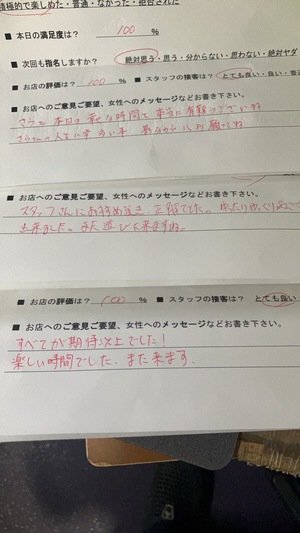 積極的で楽しめた・普通・なかった・拒否された
■ 本日の満足度は? 100 %
■ 次回も指名しますか? 絶対思う・思う・分からない・思わない・絶対ヤダ
■ お店の評価は? 100 % ■ スタッフの接客は? とても良い・良い・普
■ お店へのご意見ご要望、女性へのメッセージなどお書き下さい。
本日は 時間を 本当に有難うございますね
さらさんの人生に幸多い事 影ながら 願ってね
■ お店へのご意見ご要望、女性へのメッセージなどお書き下さい。
スタッフさんにおすすめ頂き、正解でした。ゆったりゆっくり
出来ました。また遊びに来ますね。
■ お店の評価は? 100 % ■ スタッフの接客は? とても良い
■ お店へのご意見ご要望、女性へのメッセージなどお書き下さい。
すべてが期待以上でした!
楽しい時間でした、また来ます、